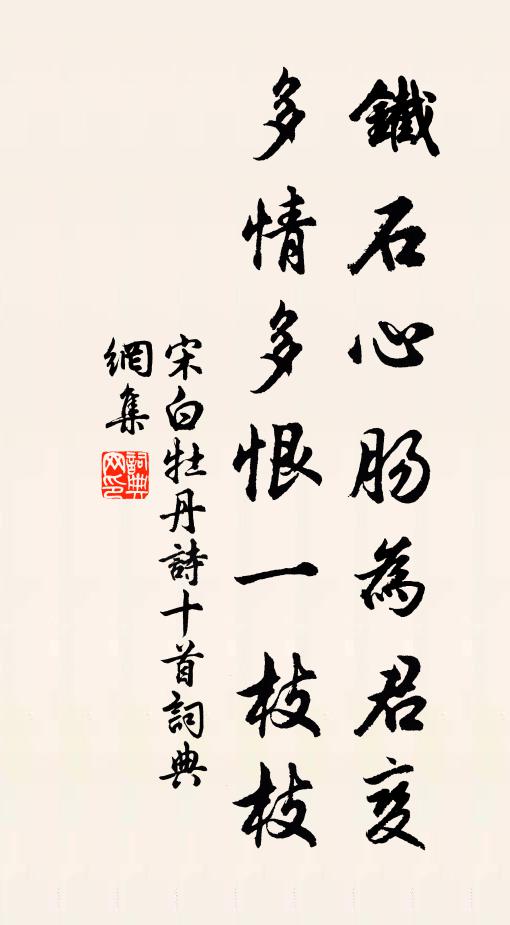 鐵石心肠為君变
多情多恨一枝枝
宋白牡丹詩十首詞典
網集
詞典
网印